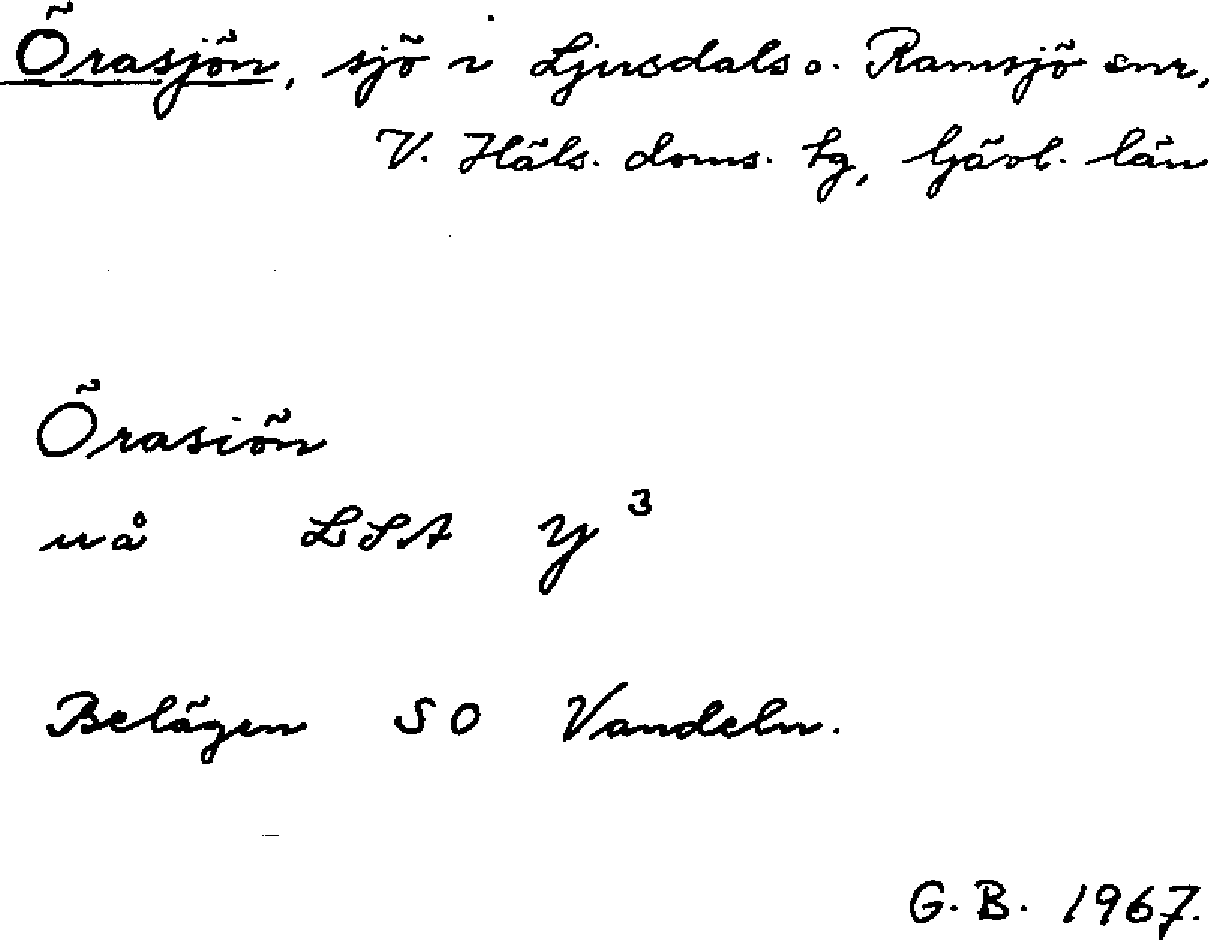 Örasjön, sjö i Ljusdals o. Ramsjö snr,
V. Häls. doms. tg, Gävl. län
Örasiön
uå LSA Y³
Belägen SO Vandeln.
G. B. 1967.